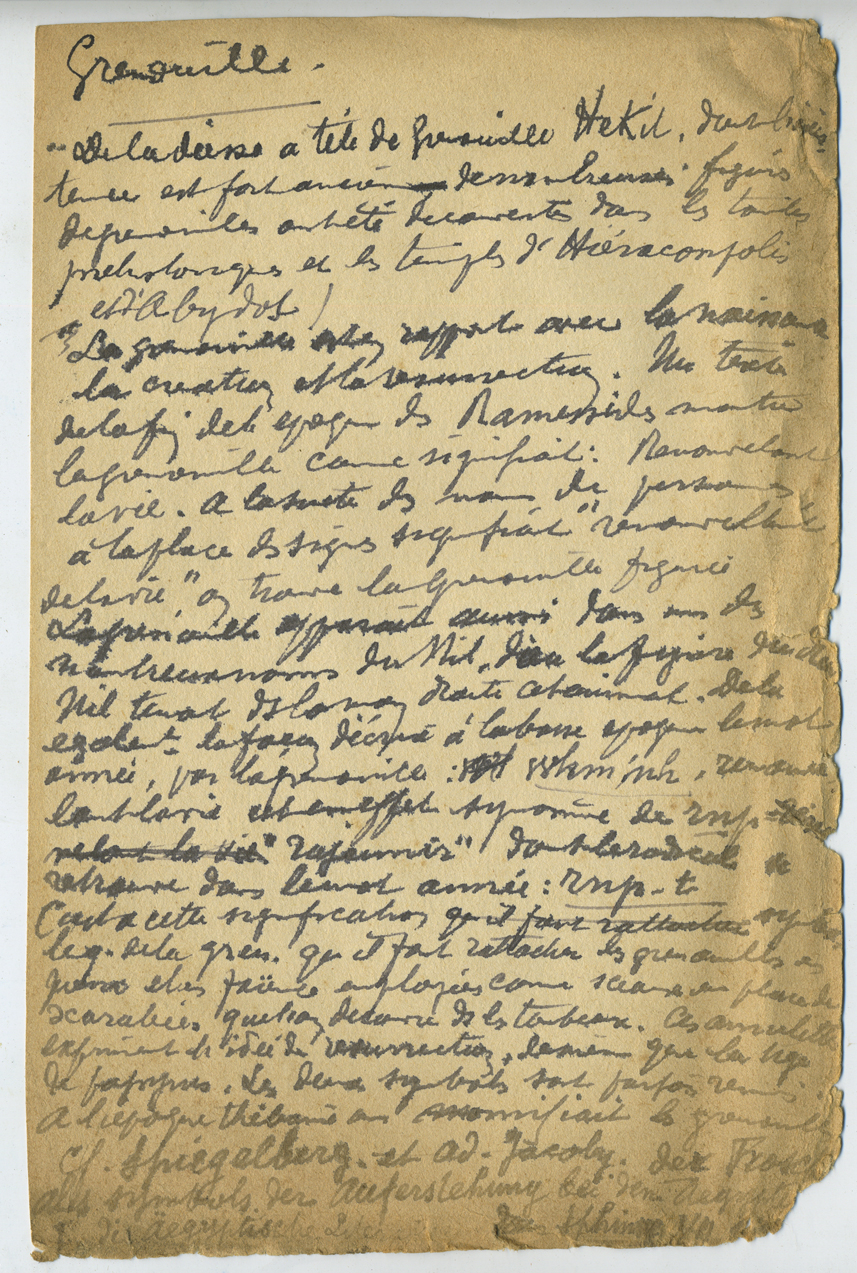 Grenouille.
"De la déesse a tête de Grenouille Hekit, dont
tence est fort ancienne de nombreuses figures
de grenouilles ont été decouvertes dans les tombes
prehistoriques et les temples d'Hiéraconpolis
et d'Abydos)
La grenouille est en rapport avec la naissance
la creation et la resurrection. Un texte
de la fin de l'epoque des Ramessides montre
la grenouille comme signifiant: Renouvelant
la vie. A la suite des noms de personnes
à la place des signes signifiant "renouvellant
de la vie" on trouve la Grenouille figurée
La grenouille apparait aussi dans un des
nombreux noms du Nil, dieu la figure du dieu
Nil tenant ds la main droite cet animal. De la
egalemt la façon d'écrire à la basse epoque le mot
année, par la grenouille: whm 'nh, renouve
lant la vie est en effet synonime de rnp
velant la vie" "rajeunir" dont le radical se
retrouve dans le mot année: rnp-t
C'est a cette signification qu'il faut rattacher
de la gren. qu'il faut rattacher les grenouilles en
pierres et en faïence employées comme sceaux en place de
scarabées que l'on decouvre ds les tombeaux. Ces amulettes
expriment l'idée de resurrection, de meme que la tige
de papyrus. Les deux symbols sont parfois reunis.
A l'epoque thébaine on momifiait les grenouilles
Cf. Spiegelberg. et Ad. Jacoby. der Frosch
als symbols der Auferstehung bei den Aegypte
die ägyptische
Sphinx